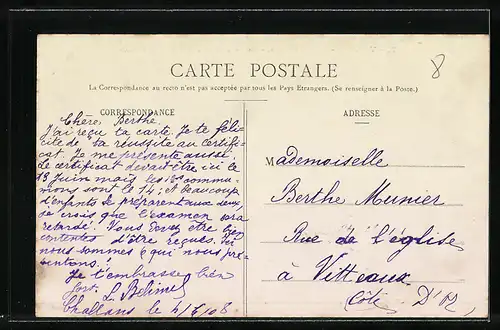 CARTE POSTALE
8
La Correspondance au recto n'est pas acceptée par tous les Pays Etrangers. (Se renseigner à la Poste.)
CORRESPONDANCE
ADRESSE
Chère Berthe
J'ai reçu ta carte. Je te féli-
cite de ta réussite au certifi-
cat. Je me présente aussi.
Le certificat devait être ici le
13 Juin mais les 1res commu-
nions sont le 14; et beaucoup
d'enfants se préparent aux deux,
je crois que l'examen sera
retardé. Vous devez être bien
contentes d'être reçues. Ici
nous sommes 6 qui nous pré-
sentons!
Je t'embrasse bien
fort. L.
Challans le 4/6/08
Mademoiselle
Berthe Meunier
Rue de l'église
à Vitteaux
Côte D'Or